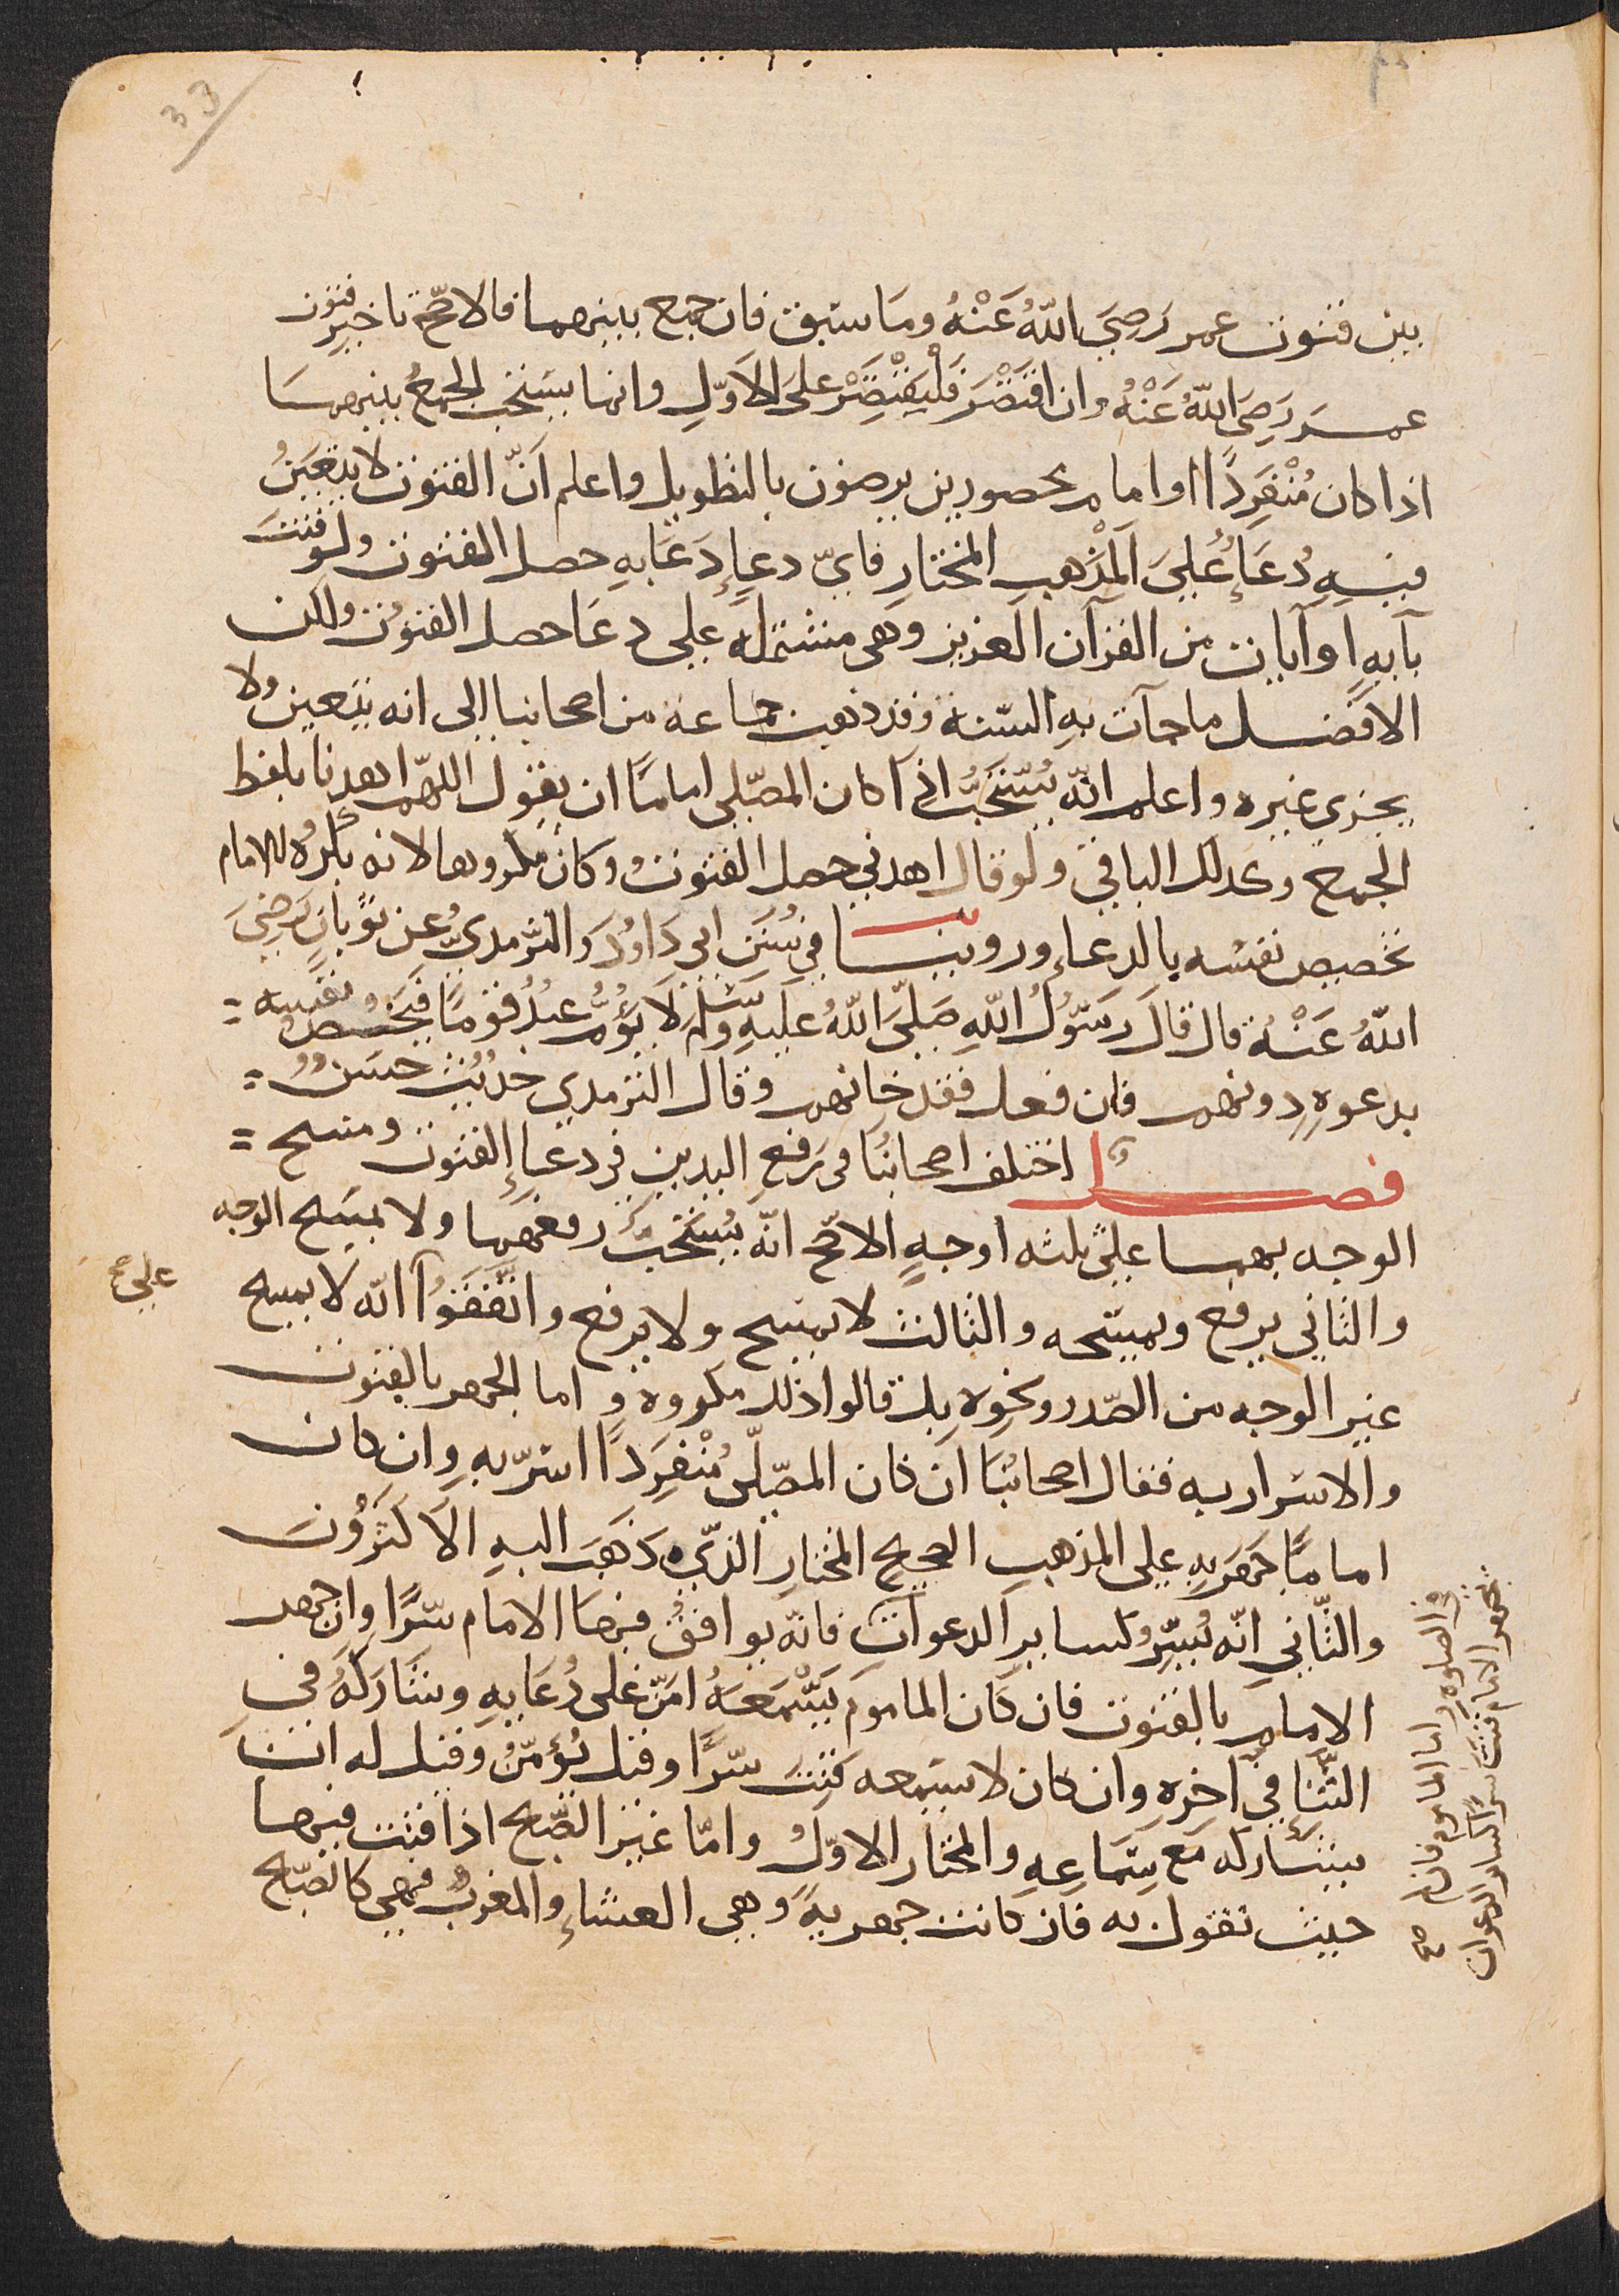 33
بين قنوت عمر رَضِيَ اللّهُ عَنْهُ ومَا سبق فان جمع بينهما فالاصّح تاخير قنوت
عمَر رَضِيَ اللّهُ عَنْهُ وان اقتَصَرَ فَلْيَقْتَصِرْ علَى الاَوّلِ وانما يستحب الجمعُ بينهمَا
اذا كان مُنْفَرِدًا او امام محصورين يرضون بالتطويل واعلم اَنّ القنوت لا يتعَيَنُ
فيهِ دُعَاءُ عَليَ المَذْهبِ المختارِ فايّ دعاءٍ دَعَا بهِ حصل القنوت ولو قنتَ
بآيهٍ او آيات من القرآن العزيز وهى مشتملهً على دعَا حصل القنوُت ولكن
الافضل ما جآت بهِ السّنة وقد ذهبت جماعة من اصحابنا الى انه يتعين ولا
يجزي غيره واعلم انّه يُسْتحَبُّ اذَا كان المصّلى امامًا ان يقول اللهمّ اهدنا بلفظ
الجمع وكذلك الباقي ولو قال اهدني حصل القنوتُ وكان مكروها لانه يُكرهُ للامام
تخصيص نفسه بالدعاءِ وروينا في سُنَنِ ابى دَاوُدَ والترْمديّ عن ثوْبانَ رَضِيَ
اللّهُ عَنْهُ قال قالَ رَسُولُ اللّهِ صَلَّى اللّهُ عَليهِ وسَلّمَ لَا يَؤُمُّ عبْدُ قومًا فيَخُصُّ نفسِه =
بدعوهٍ دونهم فان فعل فقد خانهم وقال الترمدي حديْث حسَنُ =
فصل اختلف اصحابُنَا فى رَفعِ اليدين فى دعاءِ القنوت ومسح =
الوجه بهما علىَ ثلثه اوجهٍ الاصّح انّه يُستحَب رفعُهمَا ولا يمسَح الوجه
والثّاني يرفع ويمسَحه والثالث لا يمسح ولا يرفع واتَّفَقوُا انّه لا يمسح
غير الوجه من الصّدر ونحوِهِ بل قالوا ذلك مكروه واما الجهر بالقنوت
والاسَرار به فقال اصحابُنا ان كان المصّلّى مُنْفرِدًا اسَرّ بهِ وان كان
امامًا جهَر بهِ على المذهبِ الصحيح المختارِ الذّي ذَهَبَ اليهِ الاَكثَرُوُنَ
والثّاني انّه يُسِرُّ كسايرِ الدعوات فانّه يوافقُ فيهَا الامام سّرًّا وان جهر
الامام بالقنوت فان كَان الماموم يَسْمَعُهُ امَنّ على دُعَايهِ وشَارَكَهُ في
الثّنَاءِ فى اخِرهِ وان كان لا سَمِعه قنتَ سّرًّا وقيل يُؤَمّنُ وقيل له ان
يشارَكه مَع سَمَاعِهِ والمختار الاوّل وامّا غير الصّبح اذا قنت فيها
حيث نقول به فان كانت جهريةً وهى العشاءِ والمغربُ فهى كالصّبح
على صح
في الصلوه واما الماموم فان لم صح
يجهر الامام قنت سرًّا كساير الدعوات